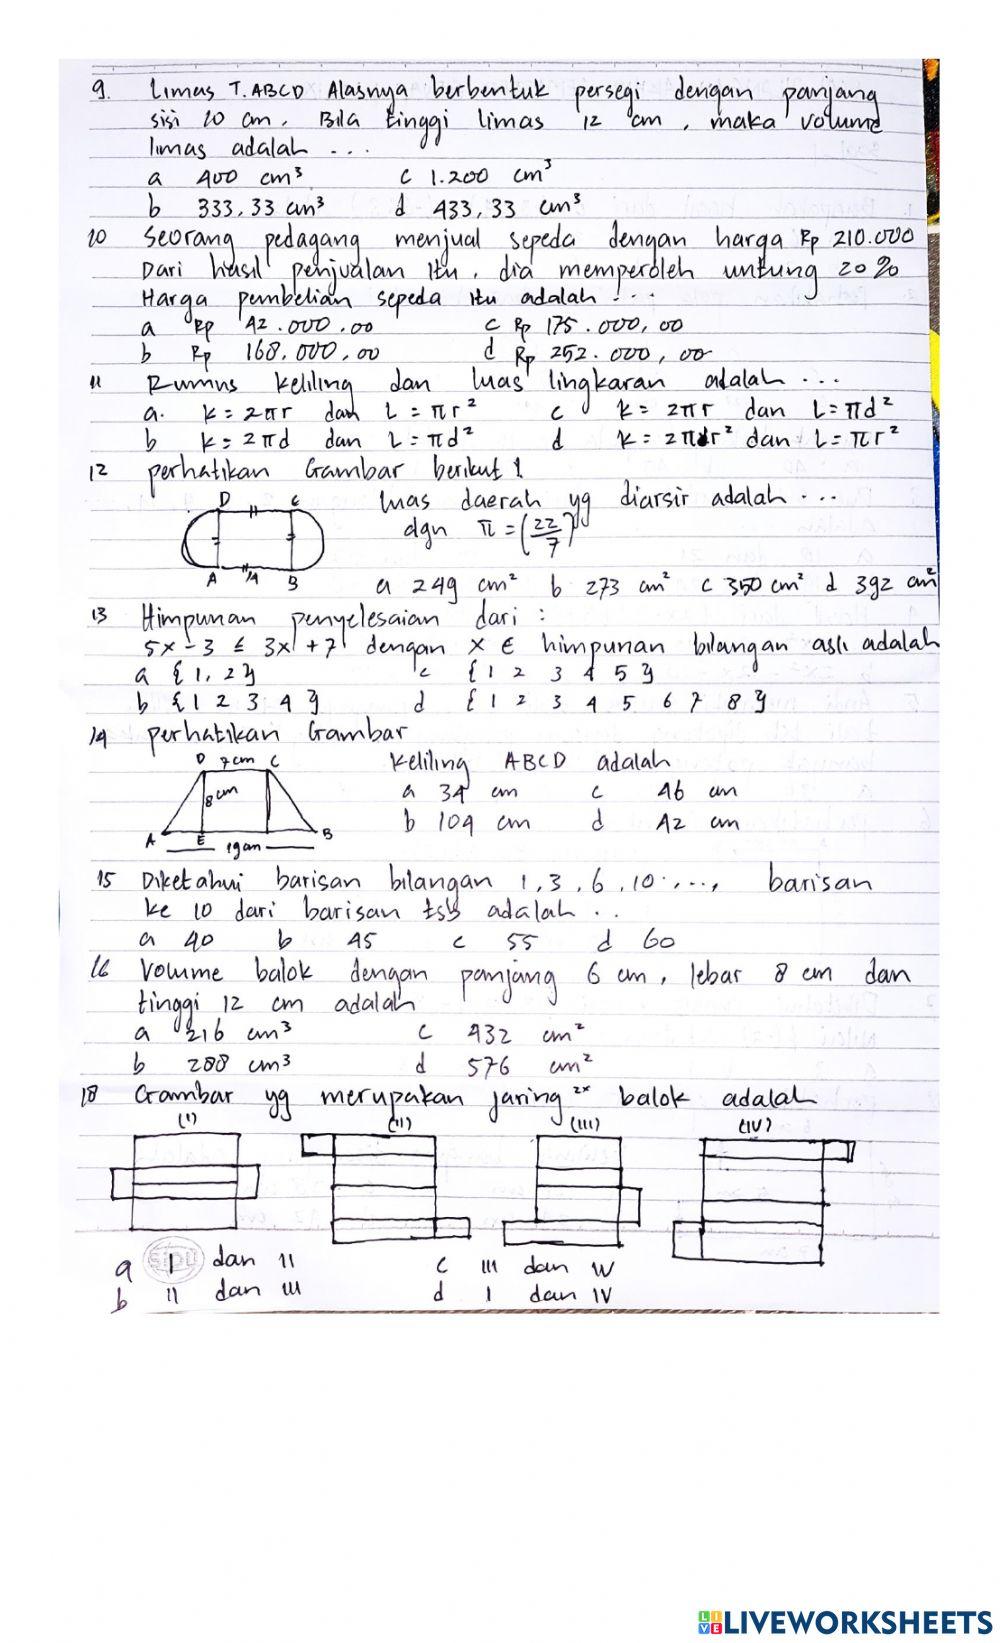 9. Limas T.ABCD Alasnya berbentuk persegi dengan panjang
sisi 10 cm. Bila tinggi limas 12 cm, maka volume
limas adalah ...
a 400 cm³ c 1.200 cm³
b 333,33 cm³ d 433,33 cm³
10 Seorang pedagang menjual sepeda dengan harga Rp 210.000
Dari hasil penjualan itu, dia memperoleh untung 20%
Harga pembelian sepeda itu adalah ...
a Rp 42.000,00 c Rp 175.000,00
b Rp 168.000,00 d Rp 252.000,00
11 Rumus keliling dan luas lingkaran adalah ...
a. k = 2πr dan L = πr² c k = 2πr dan L = πd²
b k = 2πd dan L = πd² d k = 2πr² dan L = πr²
12 perhatikan Gambar berikut !
D C luas daerah yg diarsir adalah ...
dgn π = (22/7)
A 14 B
a 249 cm² b 273 cm² c 350 cm² d 392 cm²
13 Himpunan penyelesaian dari :
5x - 3 ≤ 3x + 7 dengan x ∈ himpunan bilangan asli adalah
a {1, 2} c {1 2 3 4 5}
b {1 2 3 4} d {1 2 3 4 5 6 7 8}
14 perhatikan Gambar
D 7cm C Keliling ABCD adalah
8cm a 34 cm c 46 cm
b 104 cm d 42 cm
A E B
19cm
15 Diketahui barisan bilangan 1, 3, 6, 10, ..., barisan
ke 10 dari barisan tsb adalah ..
a 40 b 45 c 55 d 60
16 Volume balok dengan panjang 6 cm, lebar 8 cm dan
tinggi 12 cm adalah
a 216 cm³ c 432 cm²
b 288 cm³ d 576 cm²
18 Gambar yg merupakan jaring ²ˣ balok adalah
(I) (II) (III) (IV)
a I dan II c III dan IV
b II dan III d I dan IV
LIVEWORKSHEETS